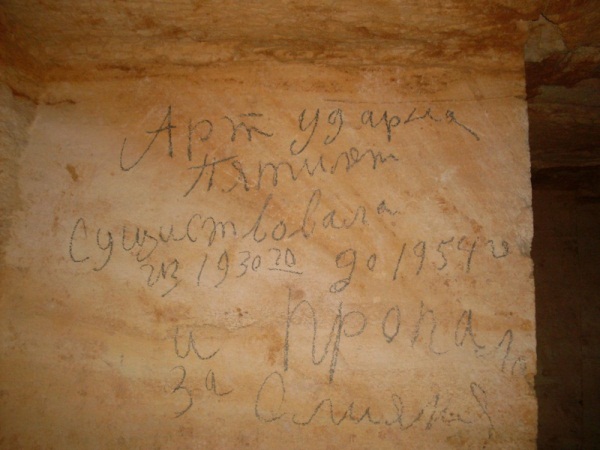 Арт ударна
Пятилет
существовала
из 1930 го до 1959 г
и пропала
за